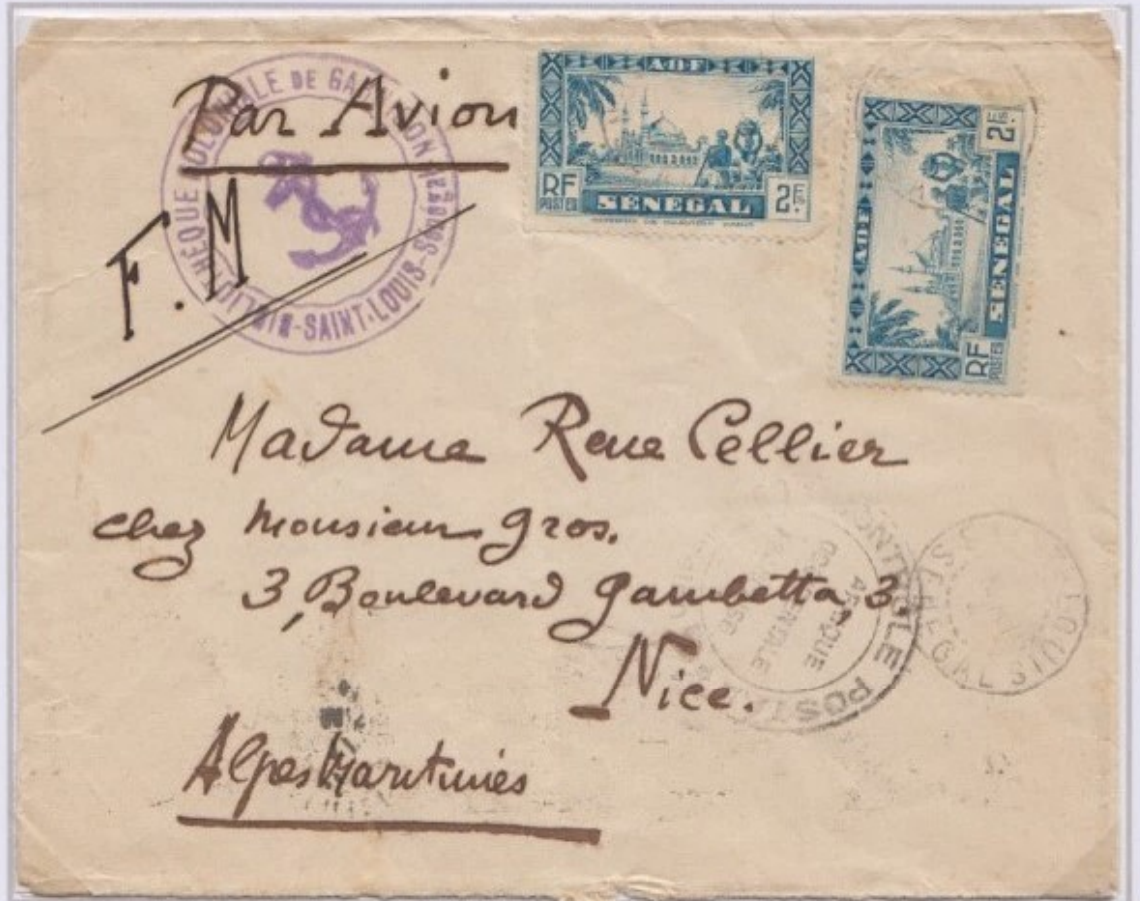 Par Avion
F. M
BIBLIOTHÈQUE COLONIALE DE GARNISON
-SAINT-LOUIS-
AOF
RF
POSTES
SÉNÉGAL
2F.
AOF
RF
POSTES
SÉNÉGAL
2F.
Madame Rene Cellier
chez Monsieur Gros.
3, Boulevard Gambetta, 3.
Nice.
Alpes Maritimes
CONTROLE POSTAL
AFRIQUE
OCCIDENTALE
ST LOUIS
SENEGAL